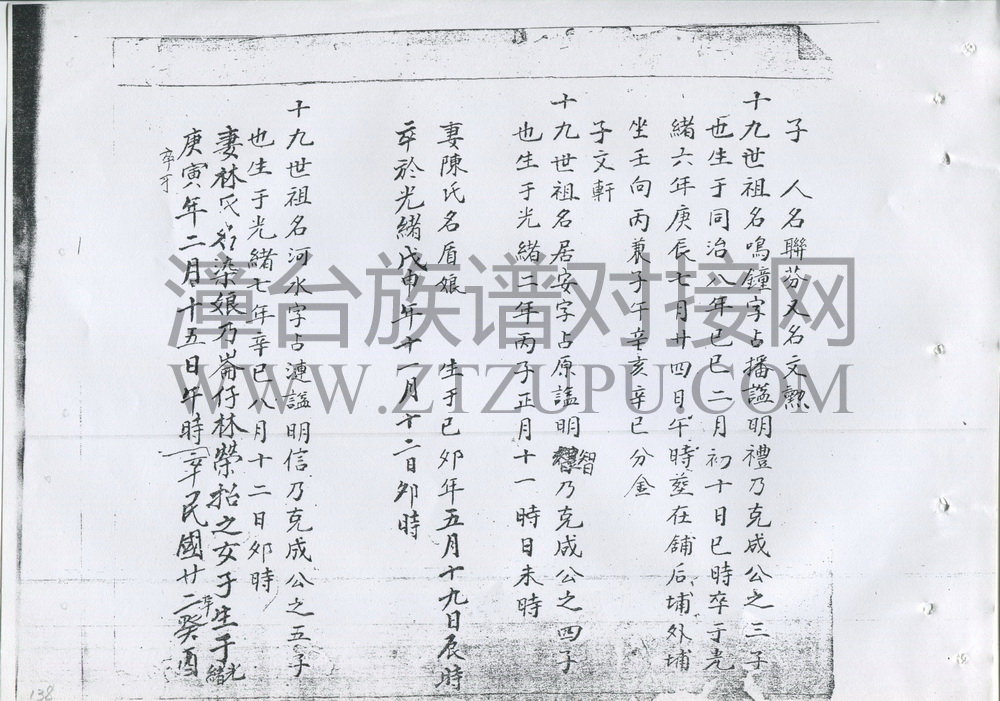 子 人名聯芬又名文勲
十九世祖名鳴鐘字占播諡明禮乃克成公之三子
也生于同治八年己巳二月初十日巳時卒于光
緒六年庚辰七月廿四日午時塟在舖后埔外埔
坐壬向丙兼子午辛亥辛巳分金
子文軒
十九世祖名居安字占原諡明智乃克成公之四子
也生于光緒二年丙子正月十一時日未時
妻陳氏名盾娘 生于己卯年五月十九日辰時
卒於光緒戊申年十一月十二日夘時
十九世祖名河水字占漣諡明信乃克成公之五子
也生于光緒七年辛巳八月十二日夘時
妻林氏名染娘乃崙仔林榮抬之女子生于光緒
庚寅年二月十五日午時卒民國廿二年癸酉
卒于
漳台族谱对接网
WWW.ZTZUPU.COM
138